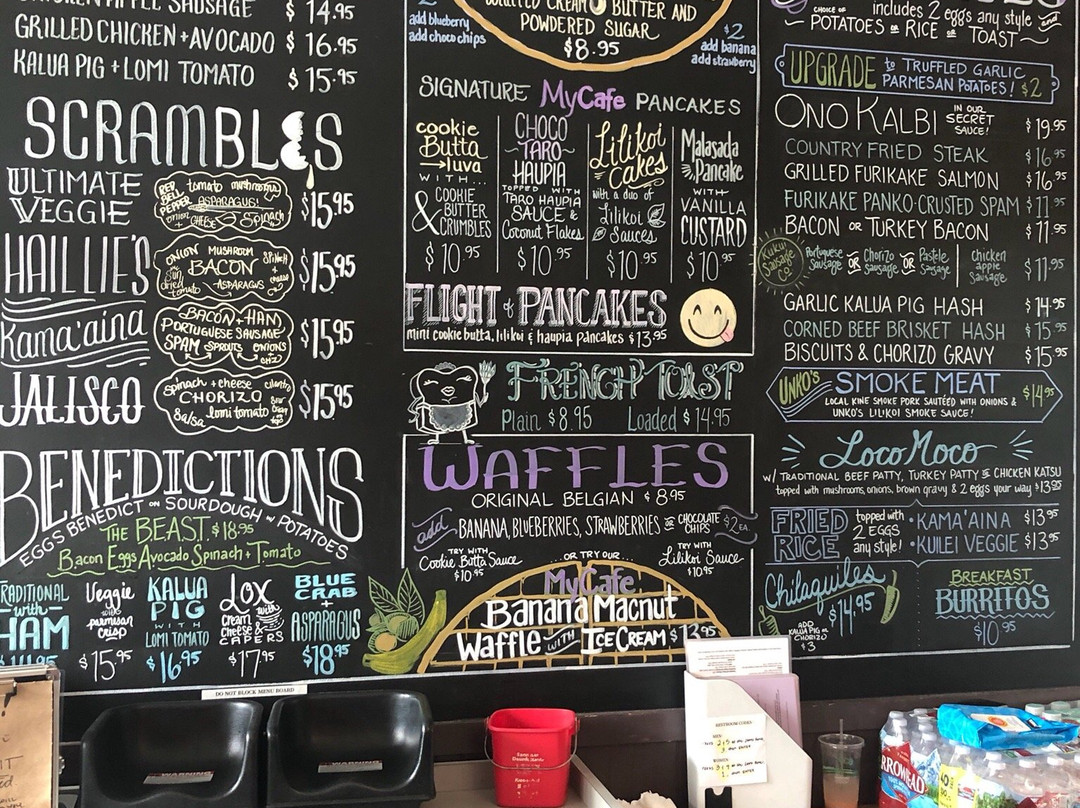 CHICKEN APPLE SAUSAGE $ 14.95
GRILLED CHICKEN + AVOCADO $ 16.95
KALUA PIG + LOMI TOMATO $ 15.95
SCRAMBLES
ULTIMATE VEGGIE
RED BELL PEPPER tomato mushrooms
onion ASPARAGUS!
CHEESE Spinach
$15.95
HAILLIE'S
ONION MUSHROOM SPINACH
BACON
sun dried tomato ASPARAGUS cheese
$15.95
Kama'aina
BACON + HAM
PORTUGUESE SAUSAGE
SPAM SPROUTS ONIONS CHZ
$15.95
JALISCO
spinach + cheese cilantro
CHORIZO
Salsa lomi tomato
$15.95
BENEDICTIONS
EGGS BENEDICT on SOURDOUGH w/ POTATOES
THE BEAST $18.95
Bacon Eggs Avocado Spinach + Tomato
TRADITIONAL with HAM
Veggie with parmesan crisp $15.95
KALUA PIG WITH LOMI TOMATO $16.95
LOX with cream cheese & CAPERS $17.95
BLUE CRAB + ASPARAGUS $18.95
$2
add blueberry
add choco chips
BUTTER AND
POWDERED SUGAR
$8.95
$2
add banana
add strawberry
SIGNATURE MyCafe PANCAKES
cookie Butta → luva WITH...
& COOKIE BUTTER CRUMBLES
$10.95
CHOCO TARO HAUPIA
TOPPED WITH
TARO HAUPIA SAUCE &
Coconut Flakes
$10.95
Lilikoi Cakes
with a duo of
Lilikoi Sauces
$10.95
Malasada Pancake
WITH
VANILLA CUSTARD
$10.95
FLIGHT of PANCAKES
mint cookie butta, lilikoi & haupia pancakes $13.95
FRENCH TOAST
Plain $8.95 Loaded $14.95
WAFFLES
ORIGINAL BELGIAN $8.95
add BANANA, BLUEBERRIES, STRAWBERRIES OR CHOCOLATE CHIPS $2 EA
TRY WITH
Cookie Butta Sauce
$10.95
...OR TRY OUR...
TRY WITH
Lilikoi Sauce
$10.95
MyCafe
Banana Macnut
Waffle with ICE CREAM $13.95
CHOICE OF includes 2 eggs any style and
POTATOES OR RICE OR TOAST
UPGRADE to TRUFFLED GARLIC
PARMESAN POTATOES! $2
ONO KALBI IN OUR SECRET SAUCE! $19.95
COUNTRY FRIED STEAK $16.95
GRILLED FURIKAKE SALMON $16.95
FURIKAKE PANKO-CRUSTED SPAM $11.95
BACON OR TURKEY BACON $11.95
Kukui Sausage Co
Portuguese Sausage OR Chorizo Sausage OR Pastele Sausage chicken apple sausage $11.95
GARLIC KALUA PIG HASH $14.95
CORNED BEEF BRISKET HASH $15.95
BISCUITS & CHORIZO GRAVY $15.95
UNKO'S SMOKE MEAT $14.95
LOCAL KINE SMOKE PORK SAUTÉED WITH ONIONS &
UNKO'S LILIKOI SMOKE SAUCE!
Loco Moco
W/ TRADITIONAL BEEF PATTY, TURKEY PATTY OR CHICKEN KATSU
topped with mushrooms, onions, brown gravy & 2 eggs your way $13.95
FRIED RICE
topped with 2 EGGS any style!
• KAMA'AINA $13.95
• KUILEI VEGGIE $13.95
Chilaquiles
$14.95
ADD KALUA PIG OR CHORIZO $3
BREAKFAST
BURRITOS
$10.95
DO NOT BLOCK MENU BOARD
WARNING
WARNING
RESTROOM CODES
ARROWHEAD
40